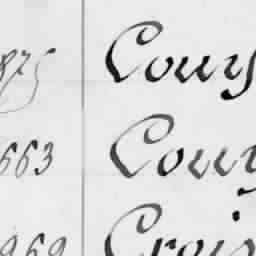 875 Couy
663 Couy
969 Crois